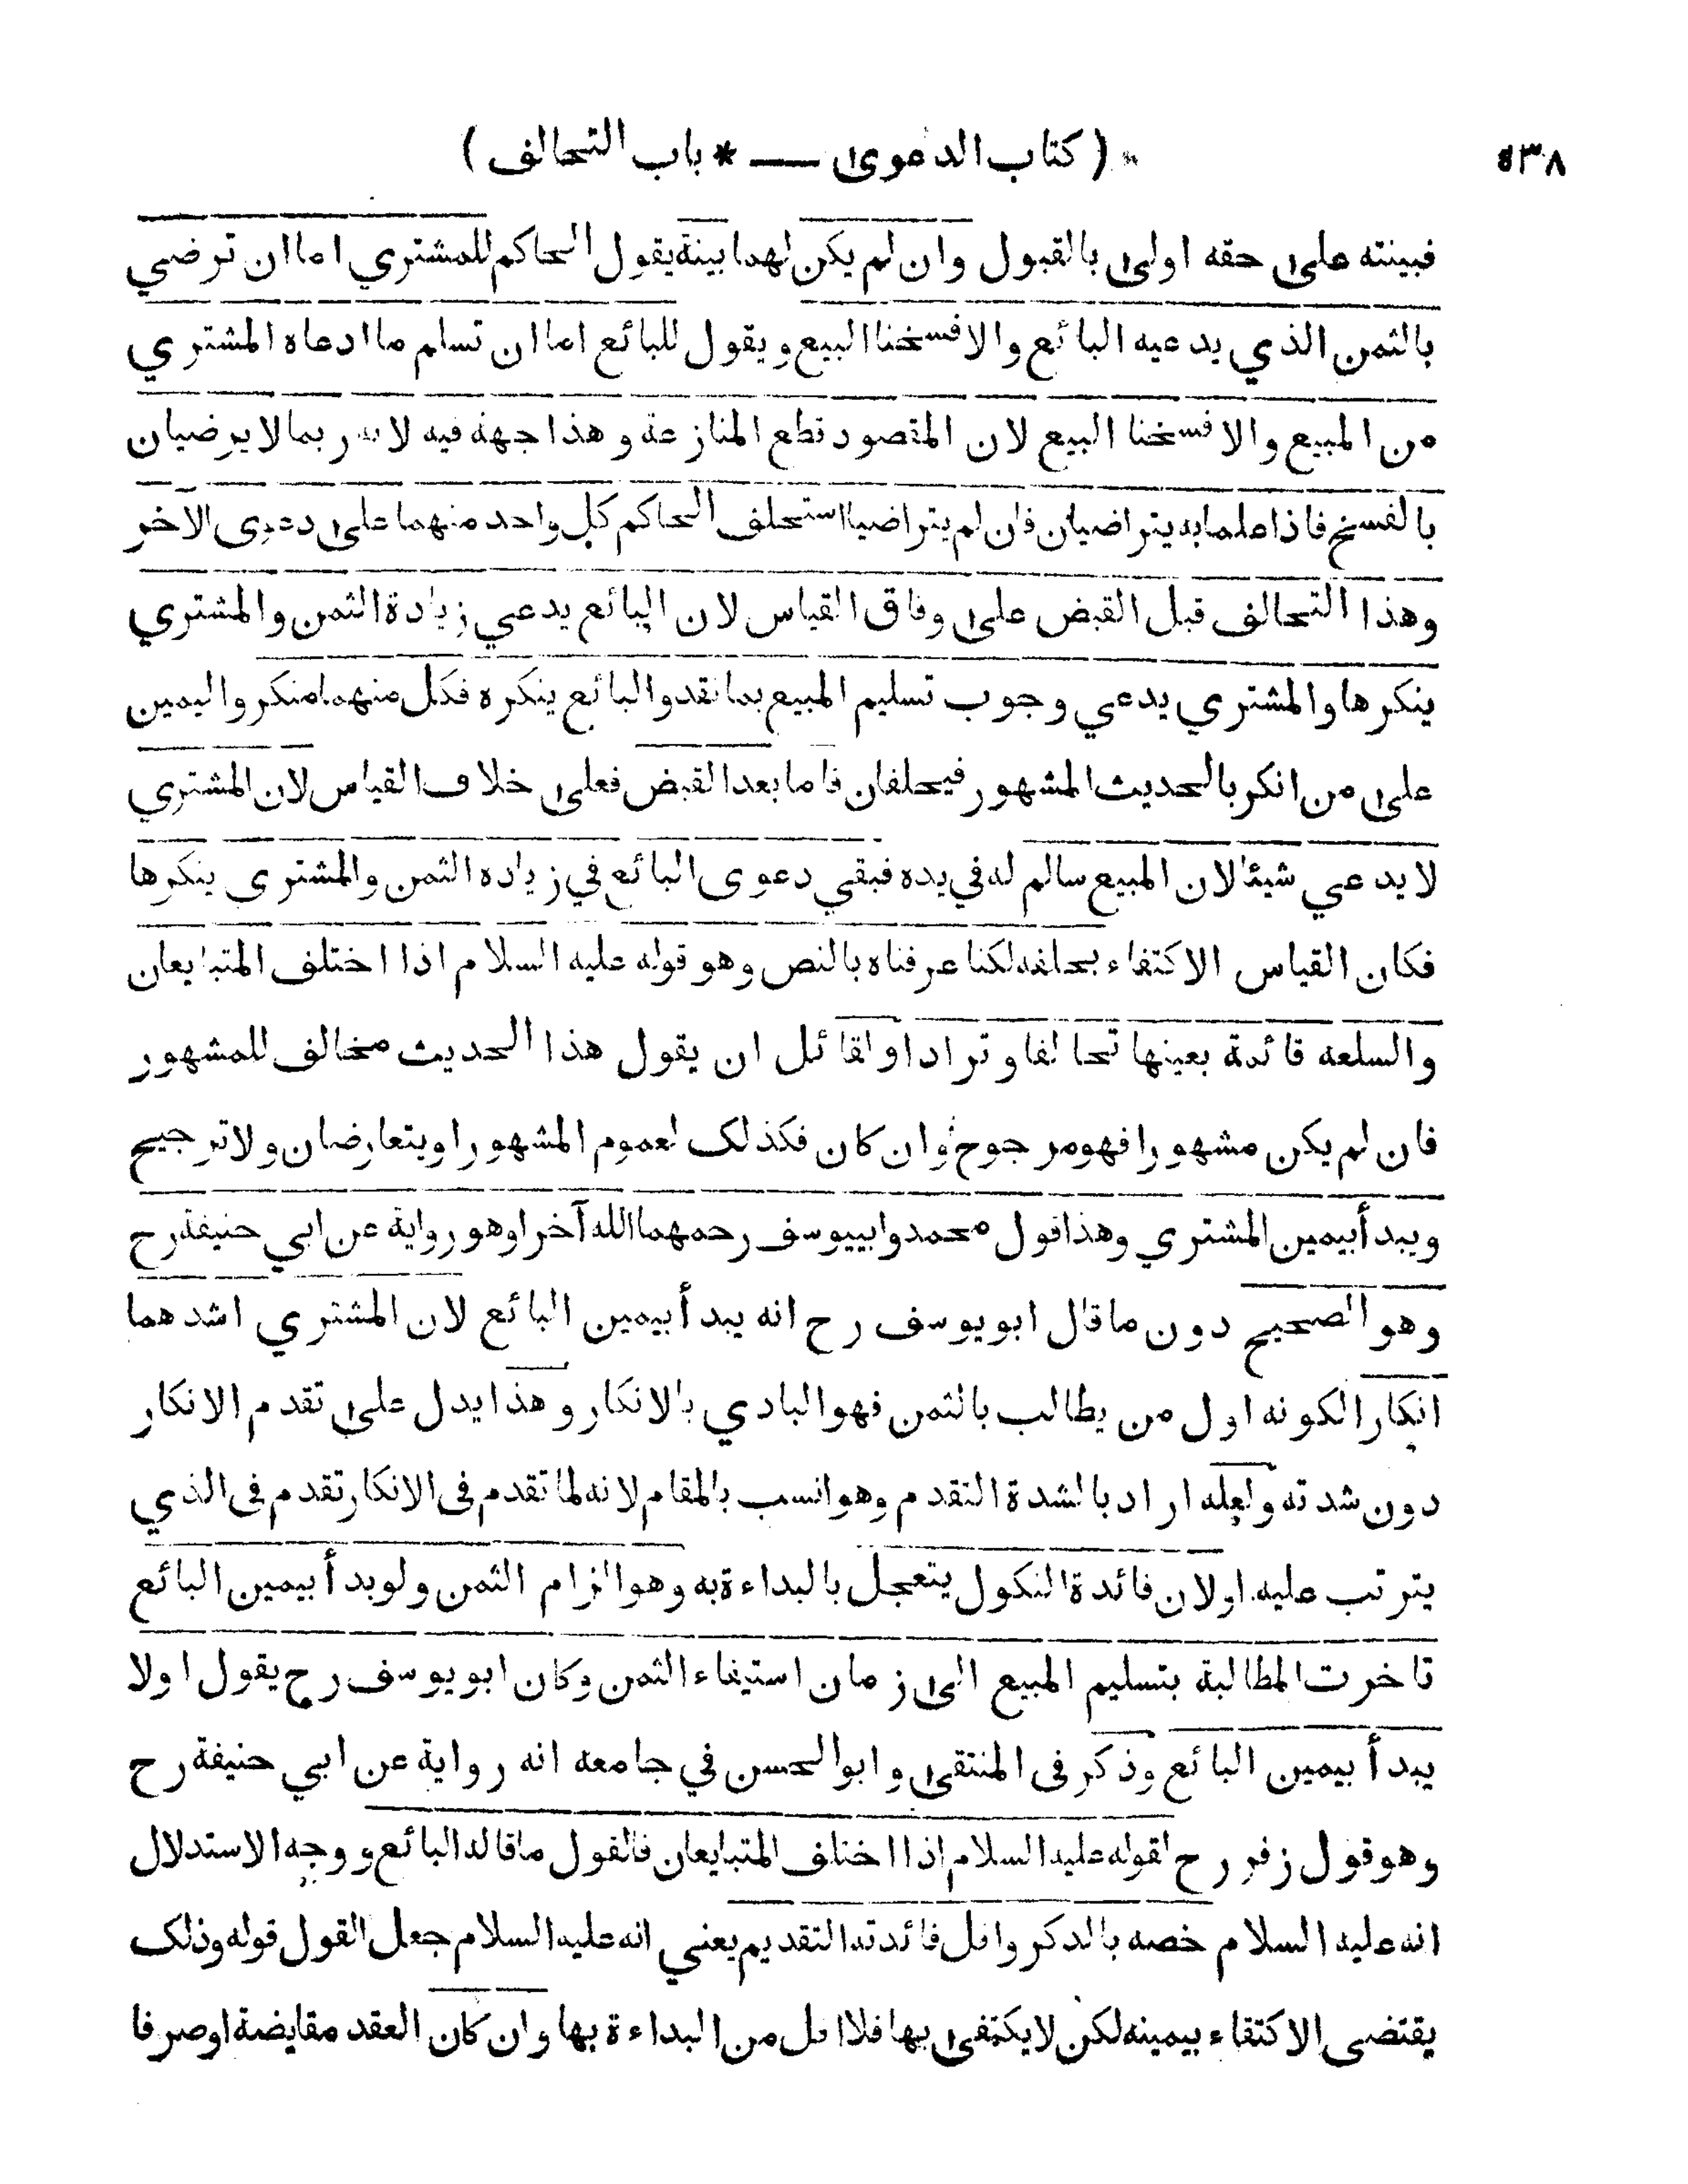 ٥٣٨ * ( كتاب الدعوى — * باب التحالف )
فبينته على حقه اولى بالقبول وان لم يكن لهما بينة يقول الحاكم للمشتري اما ان ترضي
بالثمن الذي يدعيه البائع والا فسخنا البيع ويقول للبائع اما ان تسلم ما ادعاه المشتري
من المبيع والا فسخنا البيع لان المقصود قطع المنازعة وهذا جهة فيه لانه ربما لا يرضيان
بالفسخ فاذا علما به يتراضيان فان لم يتراضيا استحلف الحاكم كل واحد منهما على دعوى الآخر
وهذا التحالف قبل القبض على وفاق القياس لان البائع يدعي زيادة الثمن والمشتري
ينكرها والمشتري يدعي وجوب تسليم المبيع بما نقد والبائع ينكره فكل منهما منكر واليمين
على من انكر بالحديث المشهور فيحلفان فاما بعد القبض فعلى خلاف القياس لان المشتري
لا يدعي شيئا لان المبيع سالم له في يده فبقي دعوى البائع في زيادة الثمن والمشترى ينكرها
فكان القياس الاكتفاء بحلفه لكنا عرفناه بالنص وهو قوله عليه السلام اذا اختلف المتبايعان
والسلعة قائمة بعينها تحالفا وترادا ولقائل ان يقول هذا الحديث مخالف للمشهور
فان لم يكن مشهورا فهو مرجوح وان كان فكذلك لعموم المشهور او يتعارضان ولا ترجيح
ويبدأ بيمين المشتري وهذا قول محمد وابييوسف رحمهما الله آخرا وهو رواية عن ابي حنيفة رح
وهو الصحيح دون ما قال ابو يوسف رح انه يبدأ بيمين البائع لان المشتري اشدهما
انكارا لكونه اول من يطالب بالثمن فهو البادي بالانكار وهذا يدل على تقدم الانكار
دون شدته ولعله اراد بالشدة التقدم وهو انسب بالمقام لانه لما تقدم في الانكار تقدم في الذي
يترتب عليه او لان فائدة النكول يتعجل بالبداءة به وهو الزام الثمن ولو بدأ بيمين البائع
تاخرت المطالبة بتسليم المبيع الى زمان استيفاء الثمن وكان ابو يوسف رح يقول اولا
يبدأ بيمين البائع وذكر في المنتقى وابو الحسن في جامعه انه رواية عن ابي حنيفة رح
وهو قول زفر رح لقوله عليه السلام اذا اختلف المتبايعان فالقول ما قاله البائع ووجه الاستدلال
انه عليه السلام خصه بالذكر واقل فائدته التقديم يعني انه عليه السلام جعل القول قوله وذلك
يقتضى الاكتفاء بيمينه لكن لا يكتفى بها فلا اقل من البداءة بها وان كان العقد مقايضة او صرفا